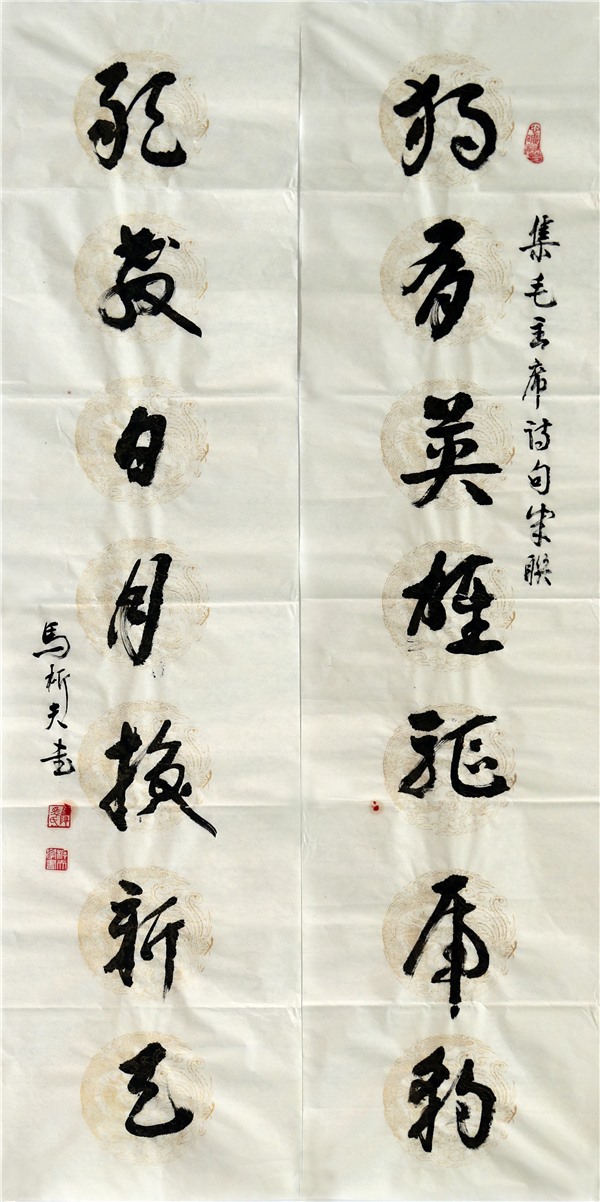 獨有英雄驅虎豹
集毛主席诗句集聯
敢教日月換新天
馬析夫書